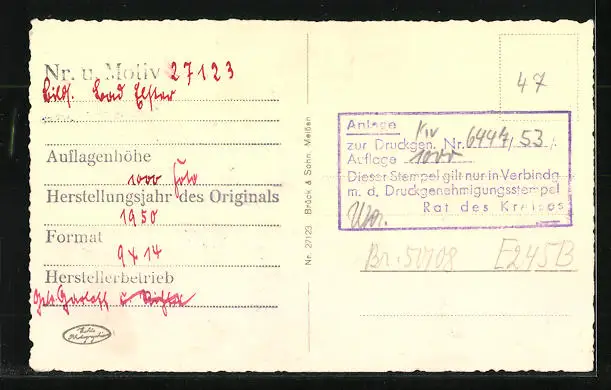 Nr. u. Motiv 27123
Bad Elster
Auflagenhöhe
1000
Herstellungsjahr des Originals
1950
Format
9 x 14
Herstellerbetrieb
Nr. 27123 Brück & Sohn, Meißen
47
Anlage
zur Druckgen. Nr. 6447/53
Auflage 1000
Dieser Stempel gilt nur in Verbindg
m. d. Druckgenehmigungsstempel
Rat des Kreises
Br. 50108 E245B